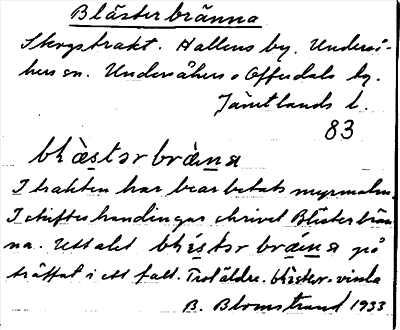 Blästerbränna
Skogstrakt. Hallens by. Underså-
kers sn. Undersåkers o Offerdals tg.
Jämtlands l.
83
I trakten har bearbetats myrmalm.
I skifteshandingar skrivet Blästerbrän-
na. Uttalet på
träffat i ett fall. Trol äldre.
B. Blomstrand 1933